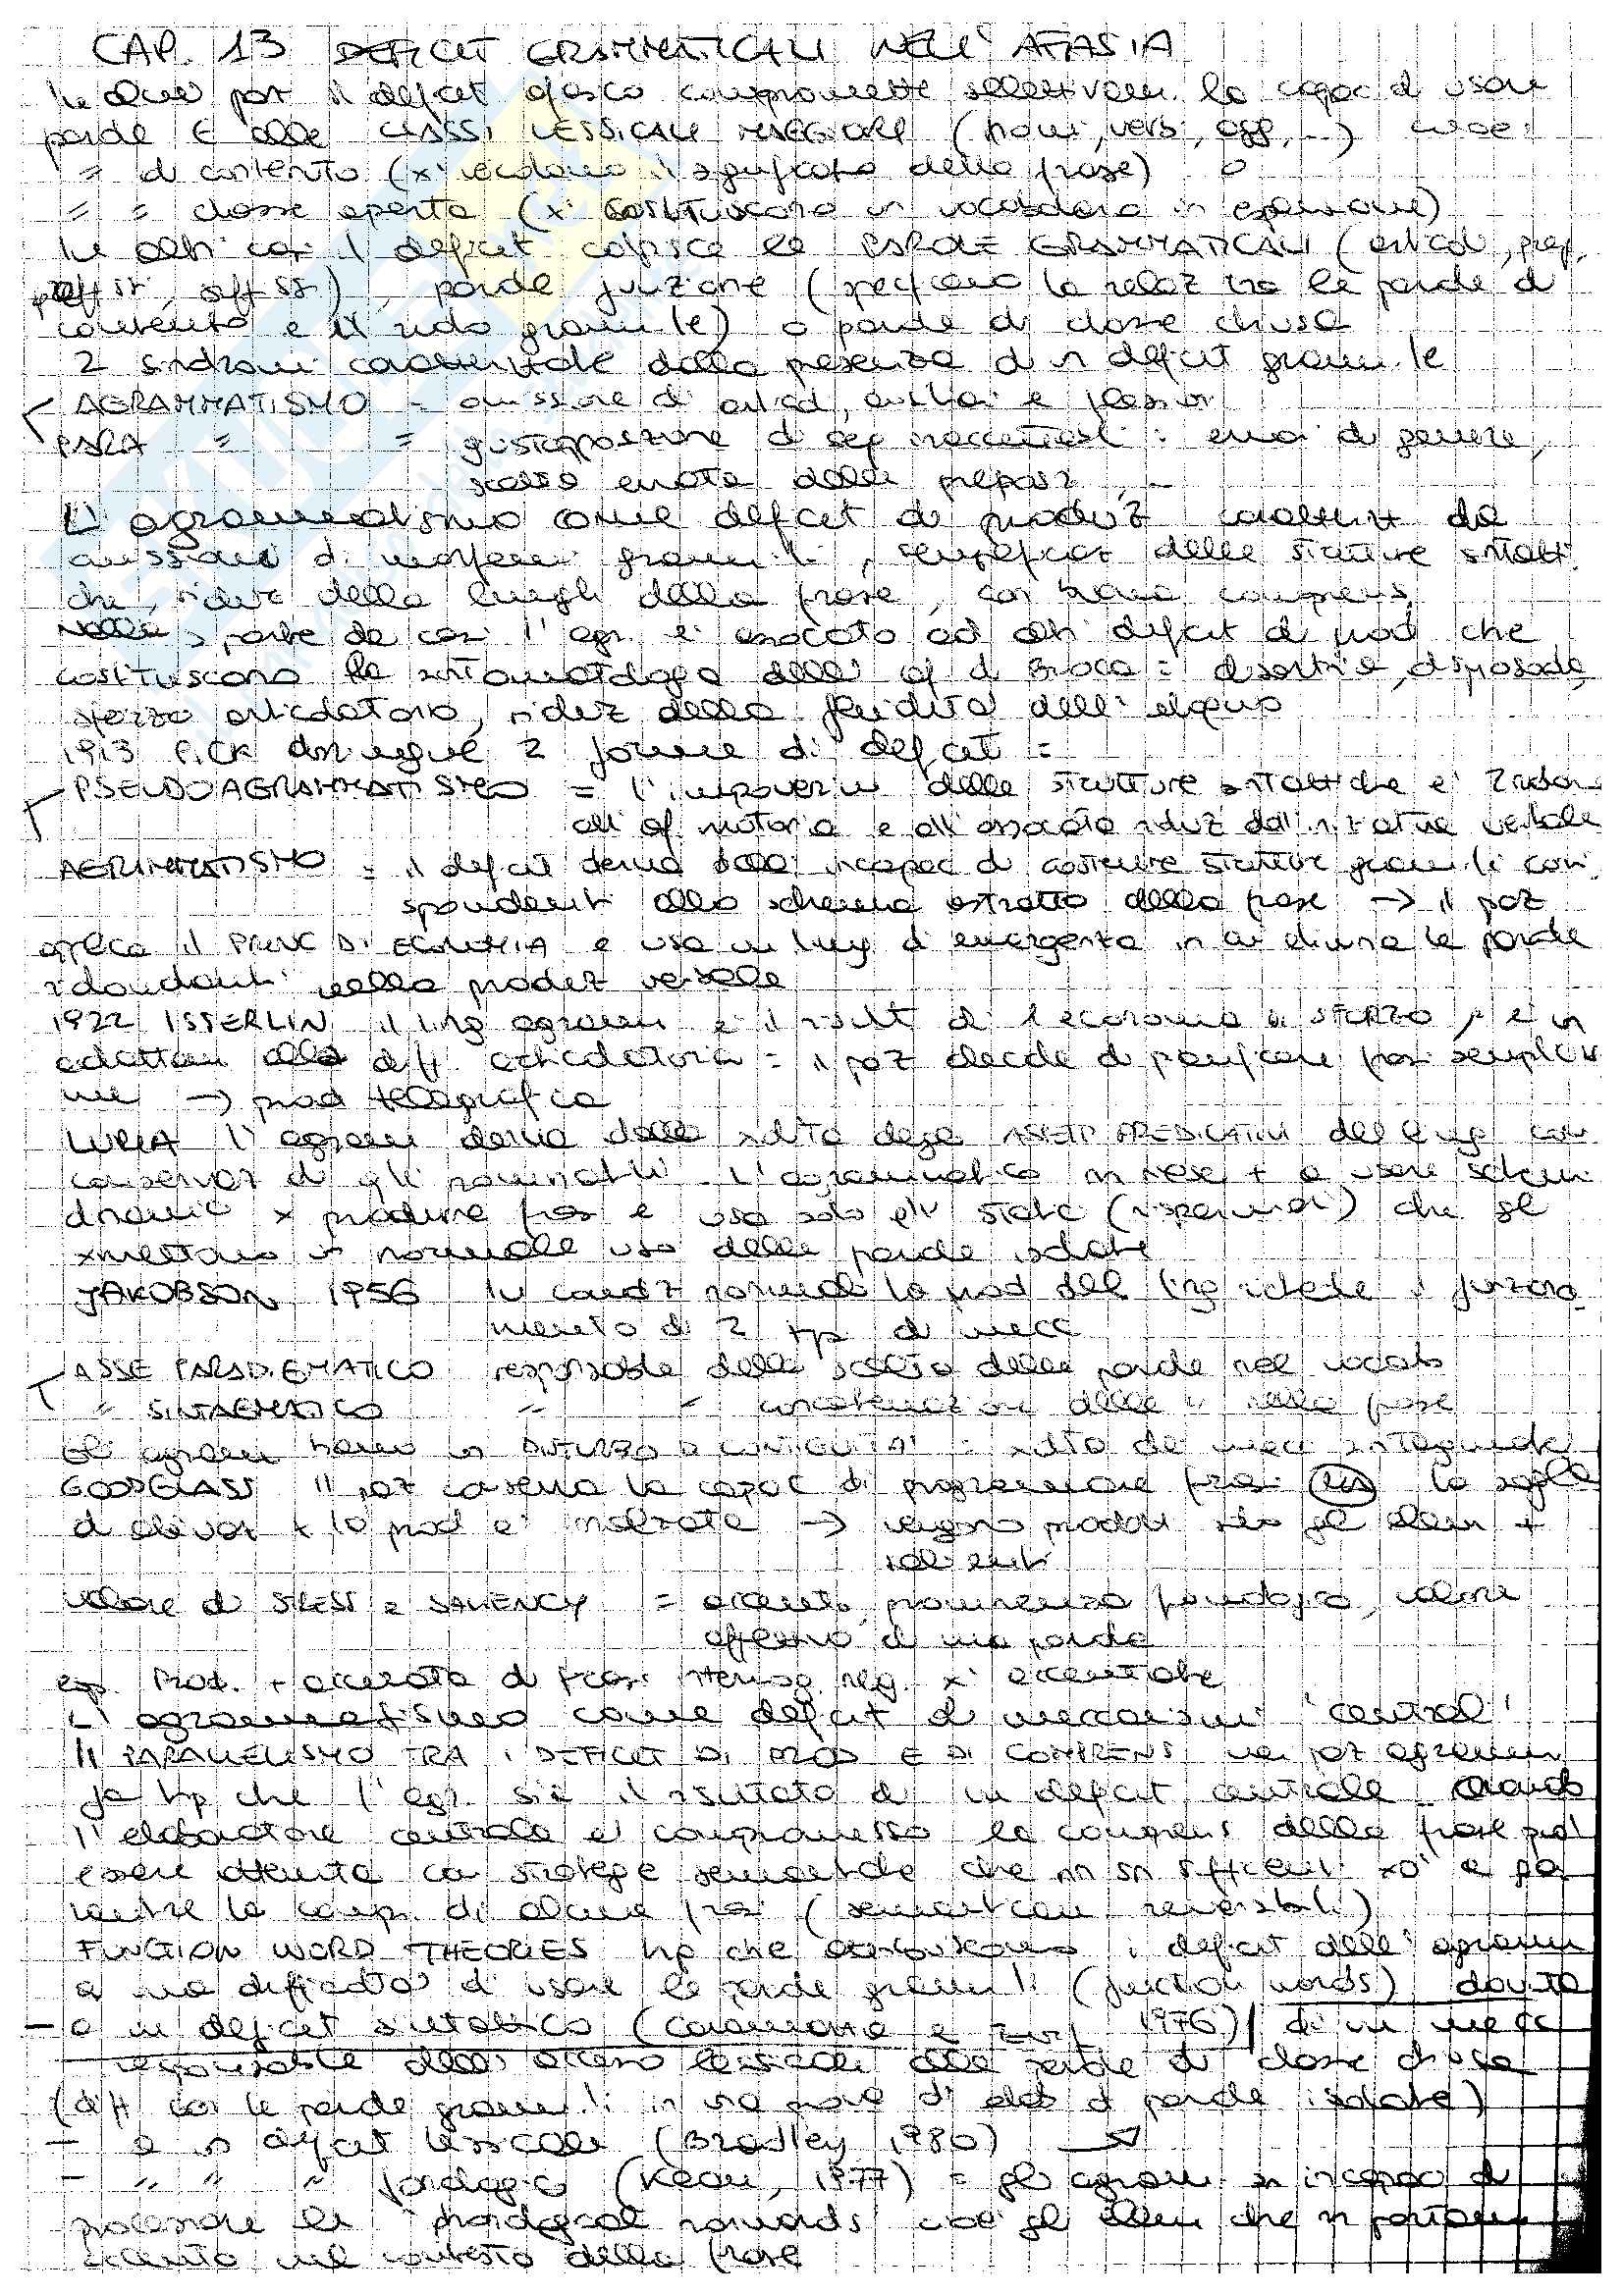 CAP. 13 DEFICIT GRAMMATICALI NELL' AFASIA
In alcuni paz il deficit afasico compromette selettivam. la capac di usare
parole E alle CLASSI LESSICALI MAGGIORI (nomi, verbi, agg, ...) cioè:
= di contenuto (x' veicolano il significato della frase) o
= = classe aperta (x' costituiscono un vocabolario in espansione)
In altri casi il deficit colpisce le PAROLE GRAMMATICALI (articoli, prep,
prefissi, suffissi), parole funzione (specificano la relaz tra le parole di
contenuto e il ruolo gramm.le) o parole di classe chiusa
2 sindromi caratterizzate dalla presenza di 1 deficit gramm.le
AGRAMMATISMO = omissione di articoli, ausiliari e flessioni
PARA = = giustapposizione di seq inaccettabili: errori di genere,
scelta errata delle preposiz
L' agrammatismo come deficit di produz caratterizz da
omissioni di morfemi gramm.li, semplificaz delle strutture sintatti
che, riduz della lungh della frase, con buona comprens.
Nella > parte dei casi l' agr. è associato ad altri deficit di prod che
costituiscono la sintomatologia dell' af di Broca = disartria, disprosodia,
sforzo articolatorio, riduz della fluidità dell' eloquio
1913 PICK distingue 2 forme di deficit =
PSEUDOAGRAMMATISMO = l'impoverim delle strutture sintattiche è 2ndario
all' af motoria e all' associata riduz dell'iniziativa verbale
AGRAMMATISMO = il deficit deriva dall' incapac di costruire strutture gramm.li corri
spondenti allo schema astratto della frase → il paz
applica il PRINC DI ECONOMIA e usa un ling d'emergenza in cui elimina le parole
ridondanti nella produz verbale
1922 ISSERLIN il ling agramm è il risult di 1 economia di SFORZO, è un
adattam alla diff articolatoria = il paz decide di pianificare frasi semplici
→ prod telegrafica
LURIA l' agramm deriva dalla xdita degli ASPETTI PREDICATIVI del ling con
conservaz di qlli nominativi. L'agrammatico nn riesce + a usare schemi
dinamici x produrre frasi e usa solo qlli statici (risparmiati) che gli
xmettono un normale uso delle parole isolate
JAKOBSON 1956 In condiz normali la prod del ling richiede il funziona
mento di 2 tipi di mecc
ASSE PARADIGMATICO responsabile della scelta delle parole nel vocab
= SINTAGMATICO = = concatenazione delle = nella frase
Gli agramm hanno un DISTURBO DI CONTIGUITA' = xdita dei mecc sintagmatici
GOODGLASS Il paz conserva la capac di programmare frasi ma la soglia
di attivaz x la prod è innalzata → vengono prodotti solo gli elem +
salienti
Valore di STRESS e SALIENCY = accento, prominenza fonologica, valore
affettivo di una parola
es. Prod. + accurata di frasi interrog neg. x' accentate
L' agrammatismo come deficit di meccanismi 'centrali'
Il PARALLELISMO TRA I DEFICIT DI PROD E DI COMPRENS nei paz agramm
fa hp che l' agr. sia il risultato di un deficit centrale. Quando
l' elaboratore centrale è compromesso la comprens della frase può
essere ottenuta con strategie semantiche che nn sn sufficienti xò a ga
rantire la comp. di alcune frasi (semanticam reversibili)
FUNCTION WORD THEORIES hp che attribuiscono i deficit dell' agramm
a una difficoltà di usare le parole gramm.li (function words) dovuta
- a un deficit sintattico (Caramazza e Zurif 1976) / di un mecc
responsabile dell' accesso lessicale alle parole di classe chiusa
(diff con le parole gramm.li in una prova di elab di parole isolate)
- a un deficit lessicale (Bradley 1980)
- " " " fonologico (Kean, 1977) = gli agramm sn incapaci di
processare le 'phonological nonwords' cioè gli elem che nn portano
accento nel contesto della frase